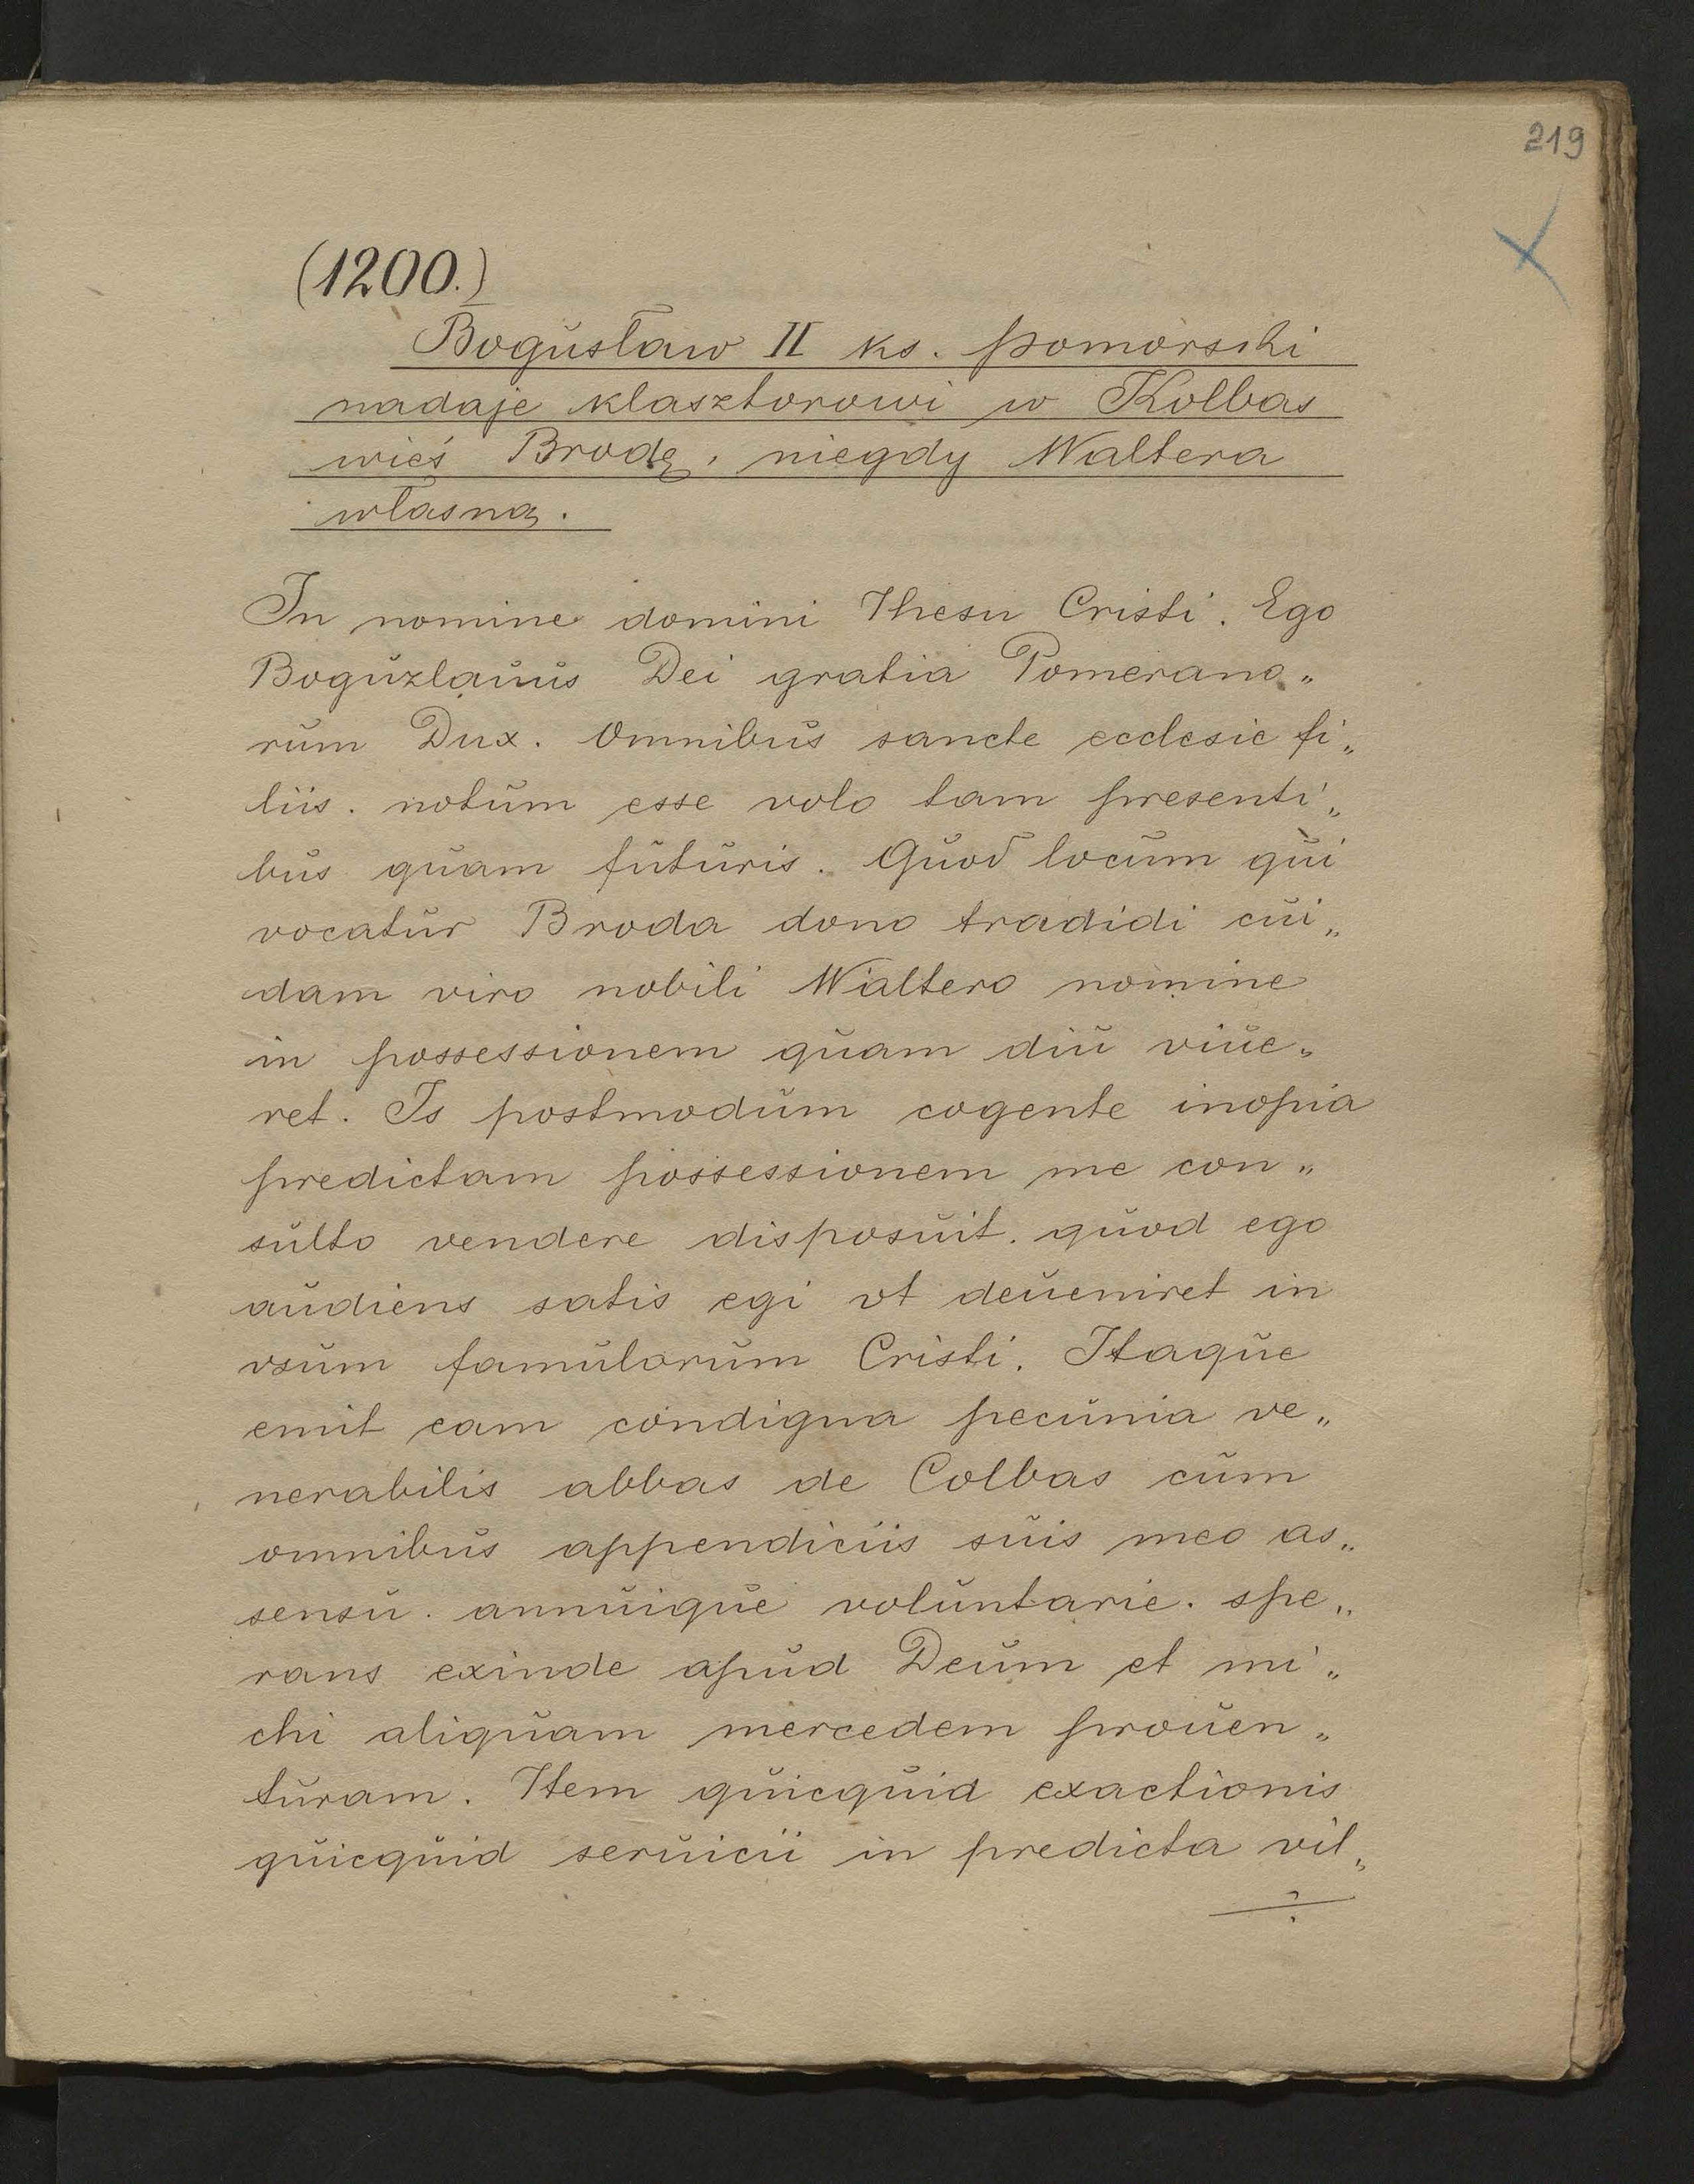 219
(1200.)
Bogusław II ks. pomorski
nadaje klasztorowi w Kolbas
wieś Brodę, niegdy Waltera
własną.
In nomine domini Ihesu Cristi. Ego
Boguzlauus Dei gratia Pomerano„
rum Dux. Omnibus sancte ecclesie fi„
liis. notum esse volo tam presenti„
bus quam futuris. Quod locum qui
vocatur Broda dono tradidi cui„
dam viro nobili Waltero nomine
in possessionem quam diu viue„
ret. Is postmodum cogente inopia
predictam possessionem me con„
sulto vendere disposuit. quod ego
audiens satis egi vt deueniret in
vsum famulorum Cristi. Itaque
emit eam condigna pecunia ve„
nerabilis abbas de Colbas cum
omnibus appendiciis suis meo as„
sensu. annuique voluntarie. spe„
rans exinde apud Deum et mi„
chi aliquam mercedem prouen„
turam. Item quicquid exactionis
quicquid seruicii in predicta vil„